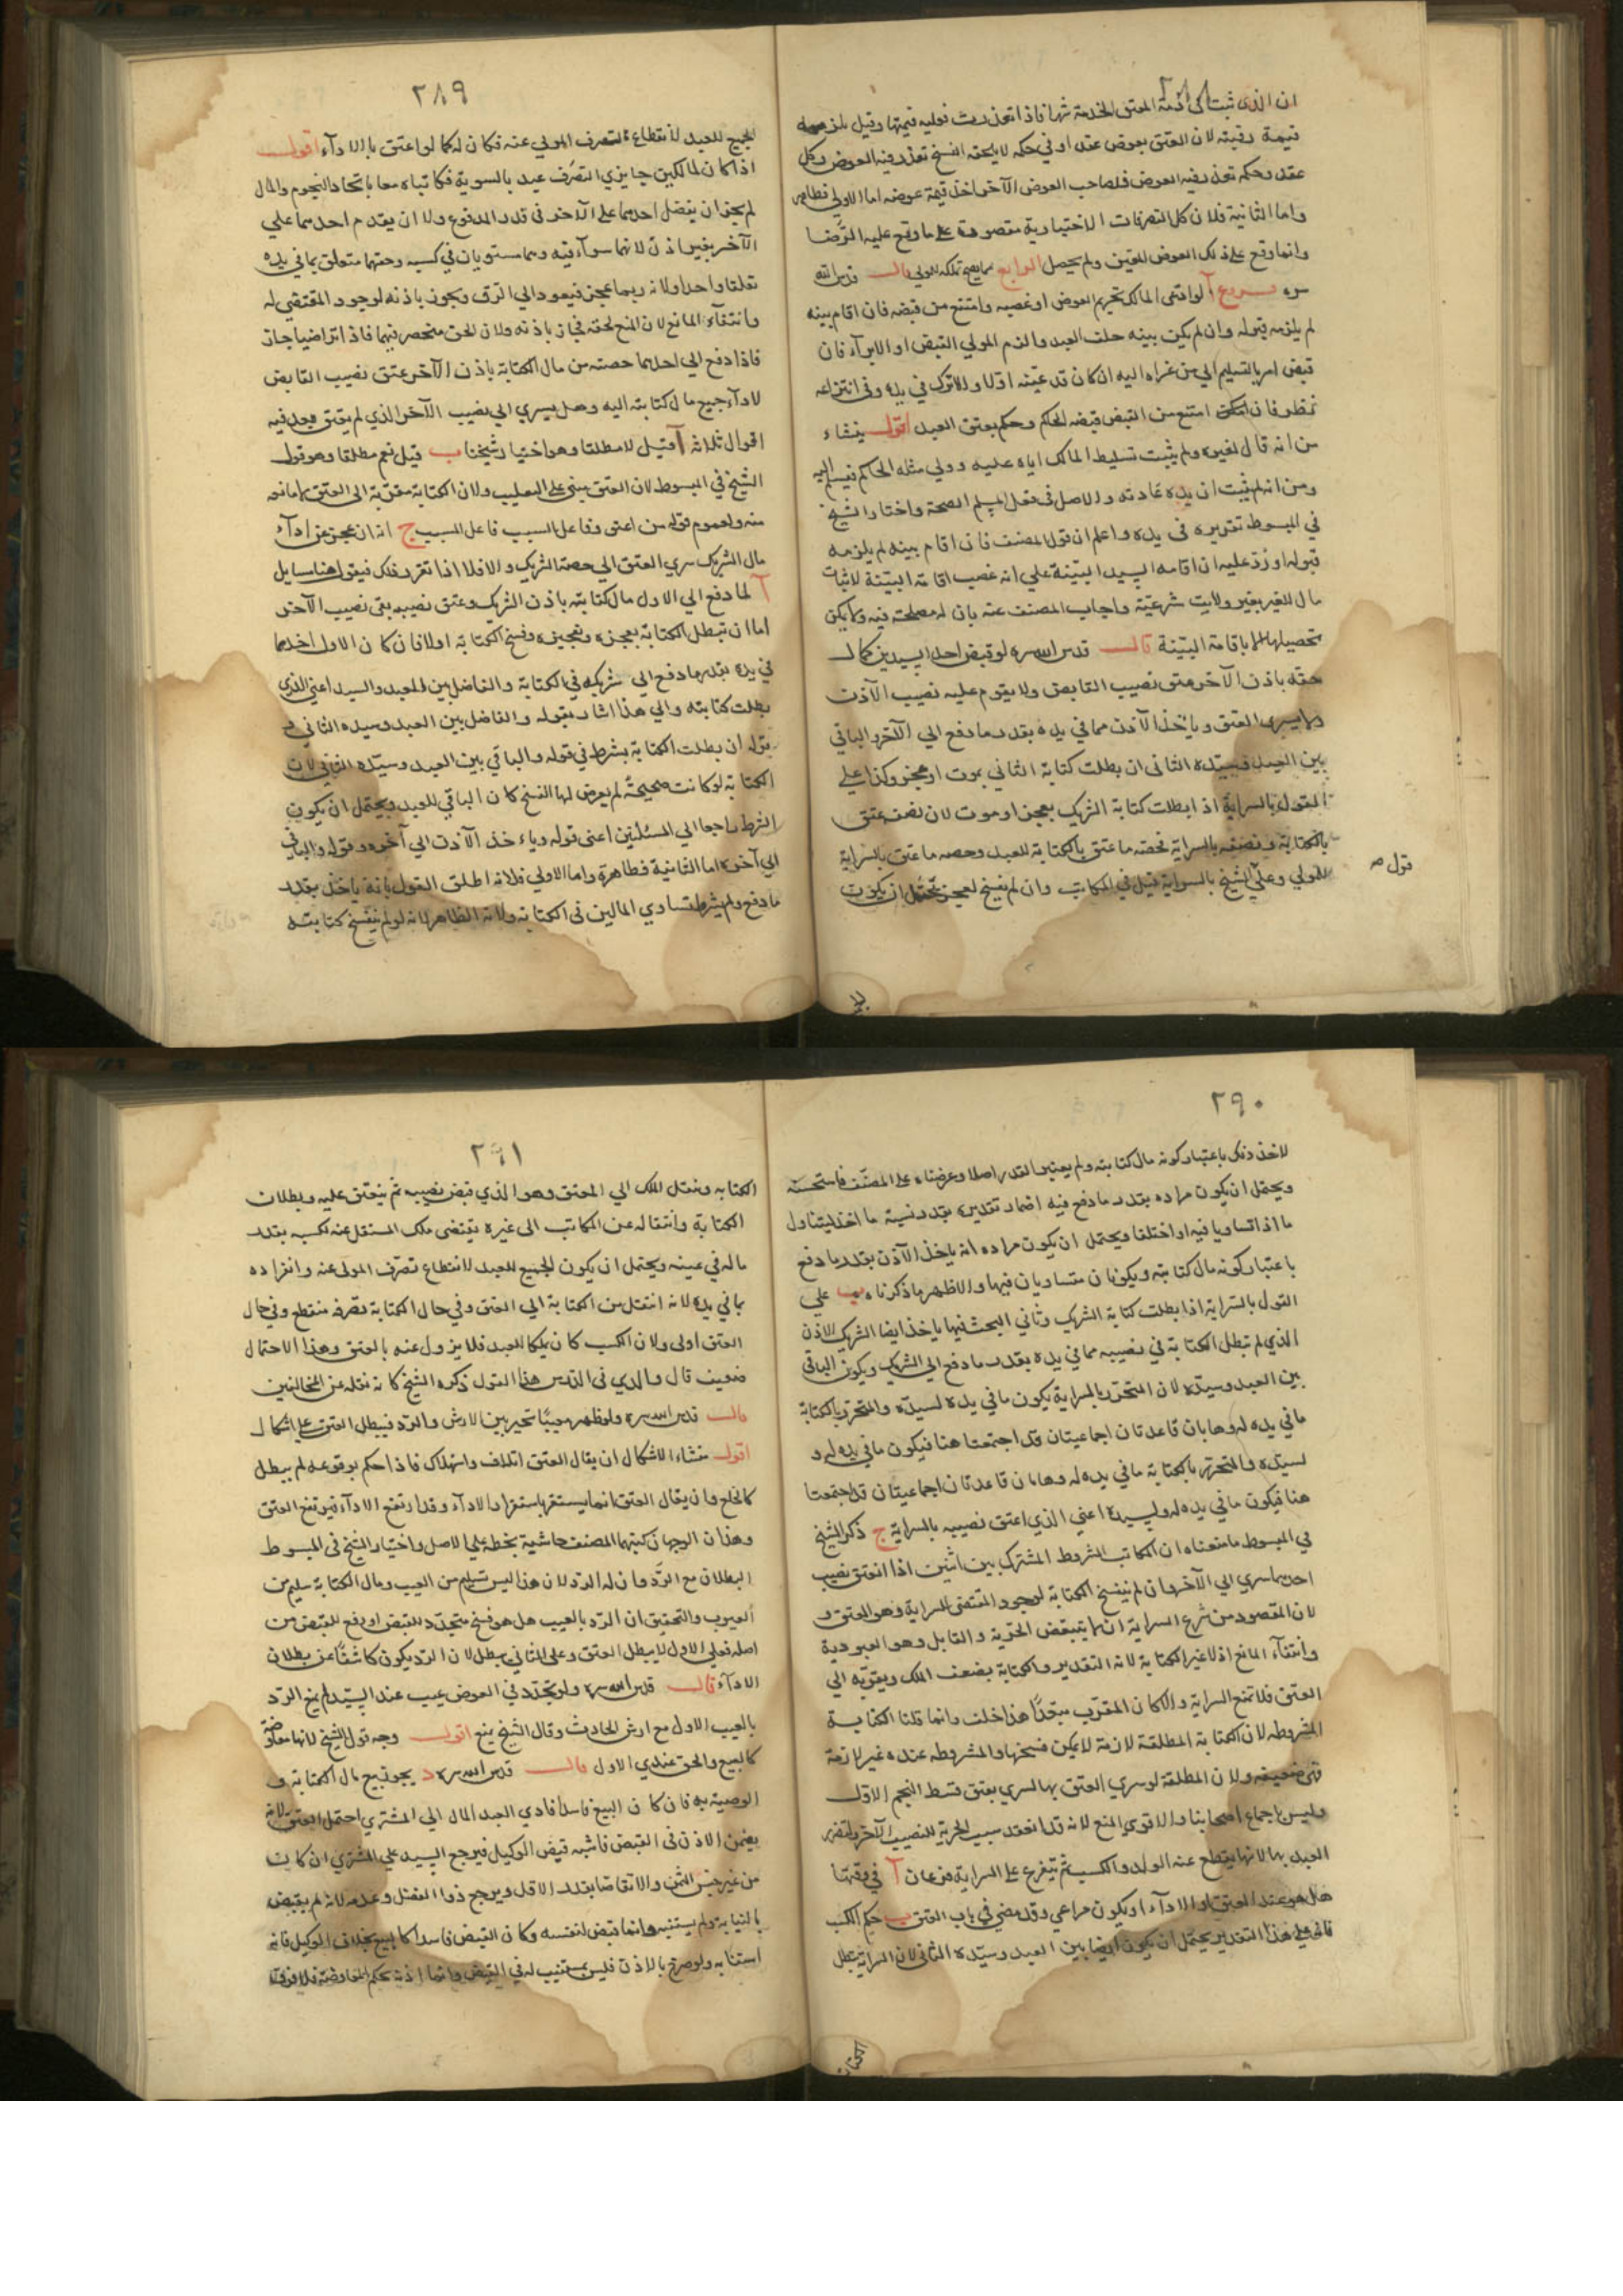 ٢٨٨
ان الذى ثبت فى ذمة المعتق الخدمة شهرا فاذا تعذرت فعليه قيمتها وقيل يلزمه
قيمة رقبته لان العتق بعوض عقد او فى حكمه لا يلحقه الفسخ تعذر فيه العوض وكل
عقد وحكمه تعذر فيه العوض فلصاحب العوض الآخر اخذ قيمة عوضه اما الاولى فظاهر
واما الثانية فلان كل التصرفات الاختيارية مقصورة على ما وقع عليه الرضا
وانما وقع على ذلك العوض المعين ولم يحصل الرابع مما يصح تملكه للمولى قال قدس الله
سره فروع آ لو ادعى المالك تحريم العوض او غصبه وامتنع من قبضه فان اقام بينه
لم يلزمه قبوله وان لم يكن بينه حلف العبد والزم المولى القبض او الابراء فان
قبض امر بالتسليم الى من عزاه اليه ان كان قد عينه اولا والا ترك فى يده وفى انتزاعه
نظر فان امتنع من القبض قبضه الحاكم وحكم بعتق العبد اقول ينشاء
من انه قال لغيره ولم يثبت تسليط المالك اياه عليه وولي مثله الحاكم فيسلم اليه
ومن انه لم يثبت ان يده عادته والاصل فى فعل المسلم الصحة واختار الشيخ
فى المبسوط تقريره فى يده واعلم ان قول المصنف فان اقام بينه لم يلزمه
قبوله اورد عليه ان اقامه السيد البينة على انه غصب اقامة البينة لاثبات
مال للغير بغير ولايت شرعية واجاب المصنف عنه بان له مصلحة فيه ولا يمكن
تحصيلها الا باقامة البينة قال قدس الله سره لو قبض احد السيدين كمال
حقه باذن الآخر عتق نصيب القابض ولا يقوم عليه نصيب الآذن
ولا يسرى العتق وياخذ الآذن مما في يده بقدر ما دفع الى الآخر والباقي
بين العبد وسيده الثانى ان بطلت كتابة الثاني بموت او عجز وكذا على
القول بالسراية اذا بطلت كتابة الشريك بعجز او موت لان نصفه عتق
بالكتابة ونصفه بالسراية فحصه ما عتق بالكتابة للعبد وحصه ما عتق بالسراية
للمولى وعلى الشيخ بالسراية قبل في المكاتب وان لم يفسخ لعجز يحتمل ان يكون
قول صم
٢٨٩
الجميع للعبد لانقطاع تصرف المولي عنه فكان له كما لو اعتق بالاداء اقول
اذا كان لمالكين جايزي التصرف عبد بالسوية فكاتباه معا باتحاد النجوم والمال
لم يجز ان يفضل احدهما على الآخر فى قدر المدفوع ولا ان يقدم احدهما علي
الآخر بغير اذن لانهما سواء فيه وهما مستويان في كسبه وحقهما متعلق بما في يده
تعلقا واحدا ولانه ربما عجز فيعود الي الرق ويجوز باذنه لوجود المقتضي له
وانتفاء المانع لان المنع لحقه فجاز باذنه ولان الحق منحصر فيهما فاذا تراضيا جاز
فاذا دفع الي احدهما حصته من مال الكتابة باذن الآخر عتق نصيب القابض
لاداء جميع مال كتابته اليه وهل يسري الي نصيب الآخر الذي لم يعتق بعد فيه
اقوال ثلاثه آ قيل لا مطلقا وهو اختيار شيخنا ب قيل نعم مطلقا وهو قول
الشيخ في المبسوط لان العتق مبنى على التغليب ولان الكتابة مقربة الى العتق لا مانعه
منه ولعموم قوله من اعتق وفاعل السبب فاعل المسبب ج انه ان عجز عن اداء
مال الشريك سري العتق الي حصة الشريك والا فلا اذا تقرر ذلك فيقول هنا مسايل
آ لما دفع الي الاول مال كتابته باذن الشريك وعتق نصيبه بقى نصيب الآخر
اما ان تبطل الكتابة بعجزه وتعجيزه وفسخ الكتابة اولا فان كان الاول اخذ مما
في يده بقدر ما دفع الى شريكه فى الكتابة والفاضل بين العبد والسيد اعني الذي
بطلت كتابته والي هذا اشار بقوله والفاضل بين العبد وسيده الثاني
بقوله ان بطلت الكتابة بشرط في قوله والباقي بين العبد وسيده الثاني لان
الكتابة لو كانت صحيحة لم يعرض لها الفسخ كان الباقي للعبد ويحتمل ان يكون
الشرط راجعا الي المسئلتين اعنى قوله وياخذ الآذن الي آخره وقوله والباقي
الي آخره اما الثانية فظاهرة واما الاولي فلانه اطلق القول بانه ياخذ بقدر
ما دفع ولم يشرط تساوي المالين فى الكتابة ولانه الظاهر لانه لو لم ينفسخ كتابته
٢٩٠
لاخذ ذلك باعتبار كونه مال كتابته ولم يعتبر القدر اصلا وعرضناه على المصنف فاستحسنه
ويحتمل ان يكون مراده بقدر ما دفع فيه اضمار تقديره بقدر نسبة ما اخذ ليتناول
ما اذا تساويا فيه او اختلفا ويحتمل ان يكون مراده انه ياخذ الآذن بقدر ما دفع
باعتبار كونه مال كتابته ويكونان متساويان فيها والاظهر ما ذكرناه ب علي
القول بالسراية اذا بطلت كتابة الشريك وثاني البحث فيها ياخذ ايضا الشريك الاذن
الذي لم تبطل الكتابة في نصيبه مما في يده بقدر ما دفع الي الشريك ويكون الباقي
بين العبد وسيده لان المتحرر بالسراية يكون ما في يده لسيده والمتحرر بالكتابة
ما في يده له وهاتان قاعدتان اجماعيتان قد اجتمعتا هنا فيكون ما في يده له و
لسيده والمتحرر بالكتابة ما في يده له وهاتان قاعدتان اجماعيتان قد اجتمعتا
هنا فيكون ما في يده له ولسيده اعني الذي اعتق نصيبه بالسراية ج ذكر الشيخ
في المبسوط ما معناه ان المكاتب المشروط المشترك بين اثنين اذا انعتق نصيب
احدهما سري الي الآخر وان لم ينفسخ الكتابة لوجود المقتضى للسراية وهو العتق و
لان المقصود من شرع السراية ان لا يتبعض الحرية والقابل وهو العبودية
وانتفاء المانع اذ لا غير الكتابة لانه التقدير والكتابة بضعف الملك ويقربه الي
العتق فلا تمنع السراية والا كان المقرب مبعدا هذا خلف وانما قلنا الكتابة
المشروطه لان الكتابة المطلقة لازمة لا يمكن فسخها والمشروطه عنده غير لازمة
فهي ضعيفه ولان المطلقة لو سري العتق بها لسري بعتق قسط النجم الاول
وليس باجماع اصحابنا والاقوي المنع لانه قد انعقد سبب الحرية للنصيب الآخر وتضرر
العبد بها لانها يقطع عنه الولد والكسب ثم يتفرع على السراية فرعان آ في وقتها
هل هو عند العتق او الاداء او يكون مراعي وقد مضى في باب العتق ب حكم الكسب
فانه على هذا التقدير يحتمل ان يكون ايضا بين العبد وسيده الثانى لان السراية تبطل
الكتابه
٢٩١
الكتابه وينقل الملك الي المعتق وهو الذي قبض نصيبه ثم ينعتق عليه وبطلان
الكتابة وانتقاله عن المكاتب الى غيره يقتضى ملك المنتقل عنه لكسبه بقدر
ماله في عينه ويحتمل ان يكون الجميع للعبد لانقطاع تصرف المولى عنه وانفراده
بما في يده لانه انتقل من الكتابة الي العتق وفي حال الكتابة تصرفه منقطع وفي حال
العتق اولى ولان الكسب كان يملكه العبد فلا يزول عنه بالعتق وهذا الاحتمال
ضعيف قال والدي فى الدرس هذا القول ذكره الشيخ كانه نقله عن المخالفين
قال قدس الله سره ولو ظهر معيبا تخير بين الارش والرد فيبطل العتق على اشكال
اقول منشاء الاشكال ان يقال العتق اتلاف واستهلاك فاذا حكم بوقوعه لم يبطل
كالخلع وان يقال العتق انما يستقر باستقرار الاداء وقد ارتفع الاداء فيرتفع العتق
وهذان الوجهان كتبهما المصنف حاشية بخطه علي الاصل واختيار الشيخ فى المبسوط
البطلان مع الرد وان له الرد لان هذا ليس تسليم من العيب ومال الكتابة سليم من
العيوب والتحقيق ان الرد بالعيب هل هو فسخ متجدد للقبض او رفع للقبض من
اصله فعلى الاول لا يبطل العتق وعلى الثاني يبطل لان الرد يكون كاشفا عن بطلان
الاداء قال قدس الله سره ولو تجدد في العوض عيب عند السيد لم يمنع الرد
بالعيب الاول مع ارش الحادث وقال الشيخ يمنع اقول وجه قول الشيخ لانها معاوضة
كالبيع والحق عندي الاول قال قدس الله سره د يجوز بيع مال الكتابة و
الوصية به فان كان البيع فاسدا فادي العبد المال الي المشتري احتمل العتق لانه
يضمن الاذن فى القبض فاشبه قبض الوكيل فيرجع السيد علي المشتري ان كان
من غير جنس الثمن والا تقاصا بقدر الاقل ويرجع ذو الفضل وعدمه لانه لم يقبض
بالنيابة ولم يستنبه وانما قبض لنفسه وكان القبض فاسدا كالبيع بخلاف الوكيل فانه
استنابه ولو صرح بالاذن فليس بمستنيب له في القبض وانما اذنه بحكم المعاوضة فلا فرق